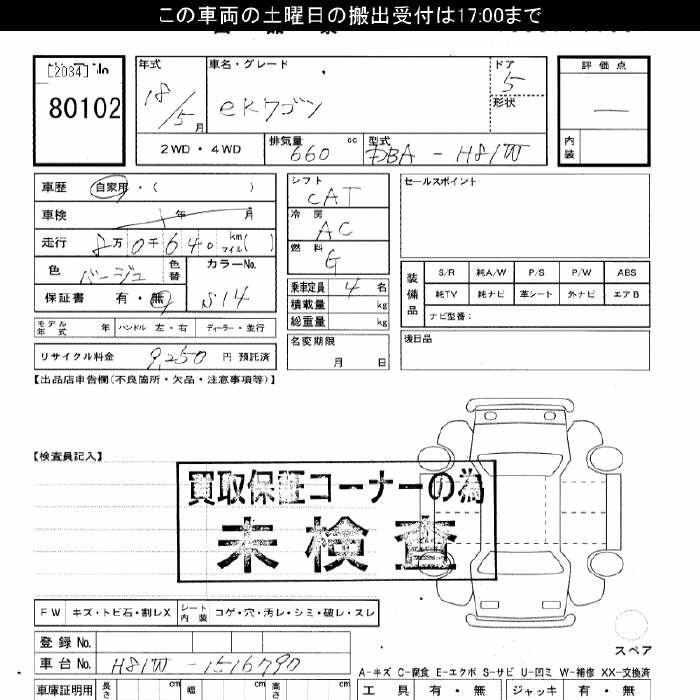 この車両の土曜日の搬出受付は17:00まで
[2034] No
80102
年式 車名・グレード ドア 評価点
18/5月 eKワゴン 5 —
形状
2WD・4WD 排気量 660 cc 型式 DBA - H81W 内装
車歴 自家用・( )
車検 年 月
走行 8万0千640 km マイル( )
色 ベージュ 色替 カラーNo.
保証書 有・無 S14
モデル年式 年 ハンドル 左・右 ディーラー・並行
リサイクル料金 9,250 円 預託済
シフト CAT
冷房 AC
燃料 G
乗車定員 4 名
積載量 kg
総重量 kg
名変期限
月 日
セールスポイント
装備品 S/R 純A/W P/S P/W ABS
純TV 純ナビ 革シート 外ナビ エアB
ナビ型番:
後日品
【出品店申告欄(不良箇所・欠品・注意事項等)】
【検査員記入】
買取保証コーナーの為
未検査
FW キズ・トビ石・割レX シート内装 コゲ・穴・汚レ・シミ・破レ・スレ
登録No.
車台No. H81W - 1516790
スペア
A-キズ C-腐食 E-エクボ S-サビ U-凹ミ W-補修 XX-交換済
車庫証明用 長さ cm 幅 cm 高さ cm 工具 有・無 ジャッキ 有・無